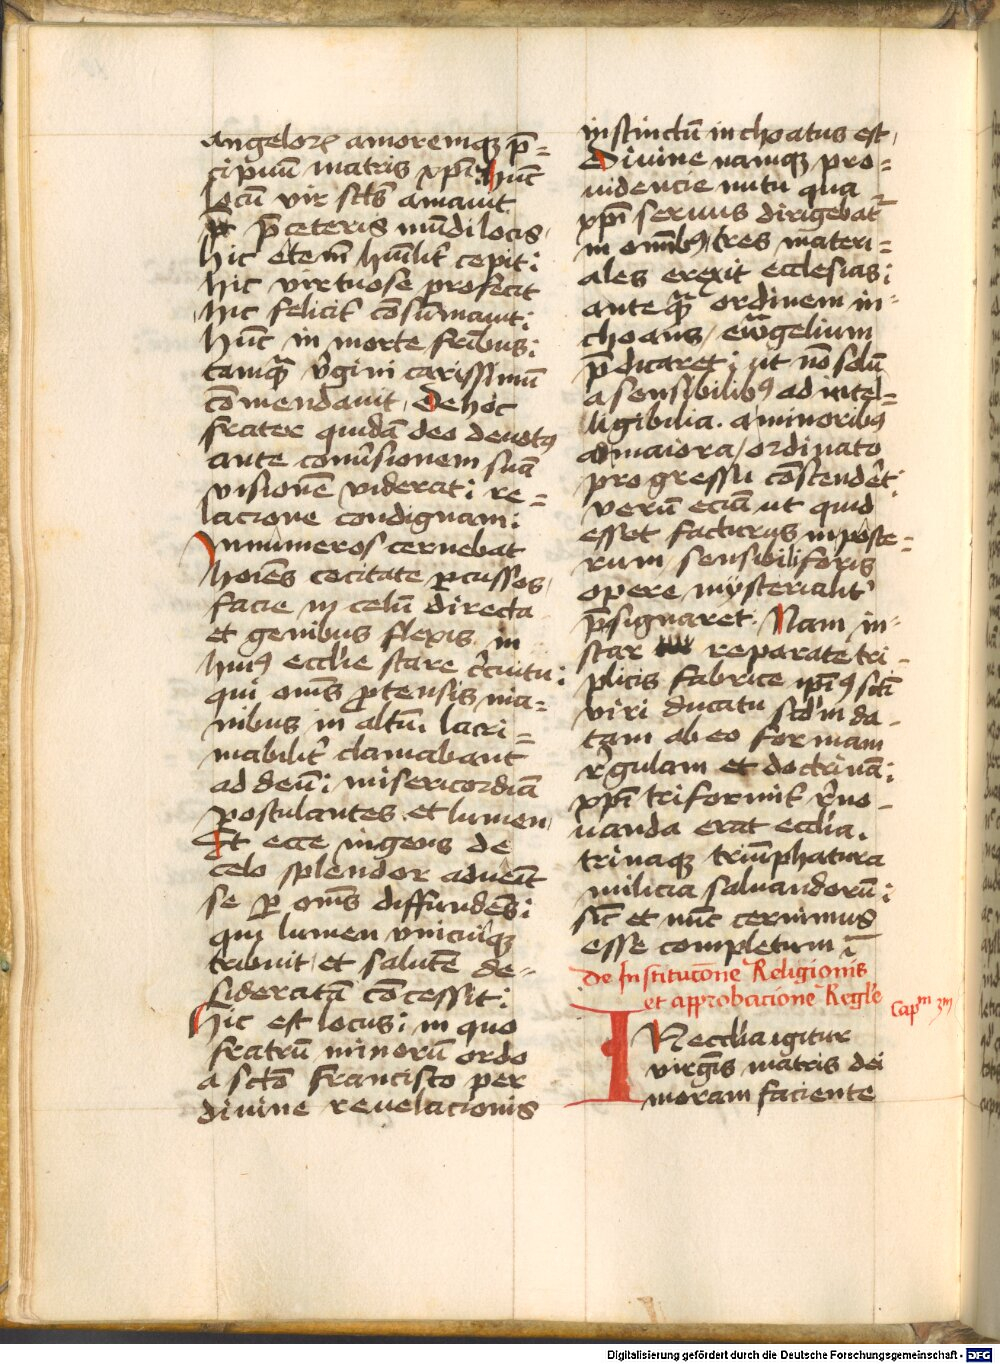 angelor(um) amoremq(ue) p̄=
cipuū matris xp̄i: Hūc
locū vir sct̄s amauit
p̄ ceteris mūdi locis
hic eteni̅ hūilit(er) cepit;
hic virtuose profecit
hic felicit(er) cōsūmauit;
hūc in morte fr̄ibus;
tamq̄ v̓gini carissimū
cōmendauit, De hoc
frater quidā deo deuotꝰ
ante conv̓sionem suā
visionē viderat; re=
lacione condignam;
Innumeros cernebat
hoīes cecitate ꝑcussos,
facie in celū directa
et genibus flexis in
huiꝰ eccl̓ie stare c̓cuitu;
qui oms̄ ꝓtensis ma=
nibus in altū. lacri=
mabilit̓ clamabant
ad deū; misericordiā
postulantes et lumen,
Et ecce ingens de
celo splendor adueīt
se ꝑ oms̄ diffundēs;
qui lumen vnicuiq̄
tribuit, et salutē de=
sideratā cōcessit;
Hic est locus; in quo
fratrū minorū ordo
a sctō Francisco per
diuine reuelacionis
instinctū inchoatus est,
Diuine namq(ue) pro=
uidencie nutu qua
xp̄i seruus dirigebat̄
in om̄ibꝰ, tres materi=
ales erexit ecclesias;
ante q̄ ordinem in=
choans, ew̄gelium
p̄dicaret; ut nō solū
a sensibilibꝰ ad intel=
ligibilia. a minoribꝰ
ad maiora, ordinato
progressu cōscender̓t;
verū eciā ut quid
esset facturus in poste=
rum sensibili foris
opere mÿsterialit̓
p̄signaret. Nam in=
star reparate tri=
plicis fabrice ip̄iꝰ sct̄i
viri ducatu scd̓m da=
tam ab eo formam
r̓gulam et doctrinā;
xp̄i triformit̓ r̓no=
uanda erat eccl̓ia.
trinaq(ue) triūphatura
milicia saluandorū;
sic̄ et nūc cernimus
esse completum
De Institucōne Religionis
et approbacione Regl̓e
Cap^m 3^m
IN eccl̓ia igitur
virgīs matris dei
moram faciente
Digitalisierung gefördert durch die Deutsche Forschungsgemeinschaft - DFG